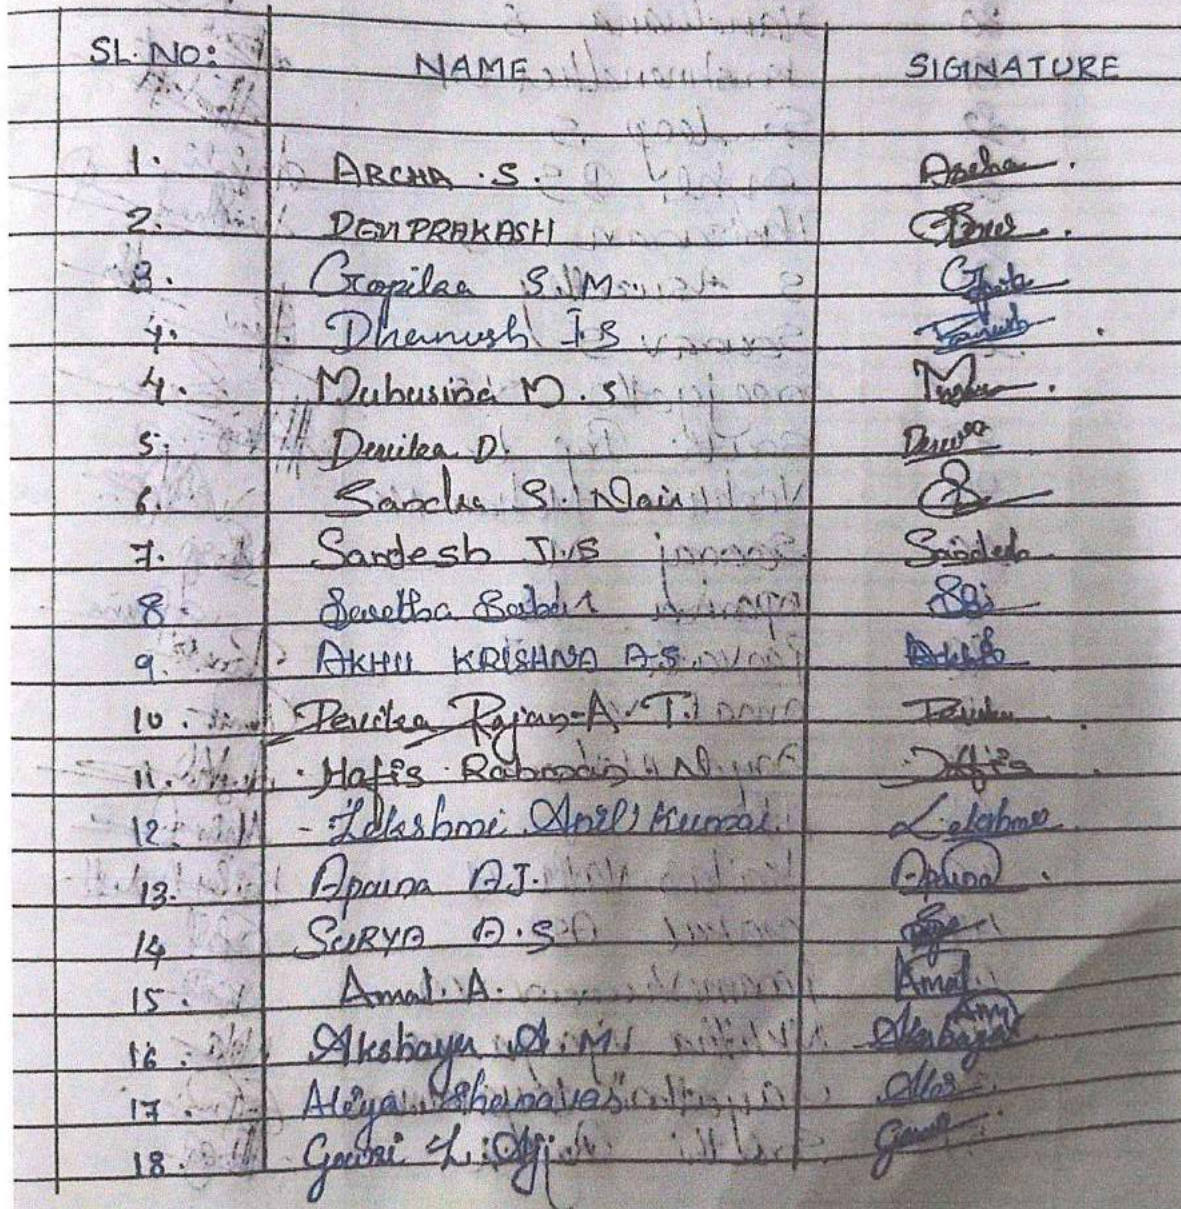 SL. NO: NAME SIGINATURE
1. ARCHA . S. Archa
2. DEVI PRAKASH
3. Gopikaa S. M Gopika
4. Dhanush I S Danush
4. Muhusina M. S
5. Devika D. Devika
6. Sandra S. Nair
7. Sandesh J. S Sandesh
8 Babu
9. AKHIL KRISHNA A.S. Akhil
10. Devika Rajan A. T. Devika
11. Hafis Rahman N Hafis
12. Lekshmi Anil Kumar. Lekshmi
13. Aparna A J. Aparna
14 SURYA A.S
15. Amal. A. Amal.
16. Akshaya A. M. Akshaya
17. Aliya Shanavas
18. Gouri L. Aji Gouri